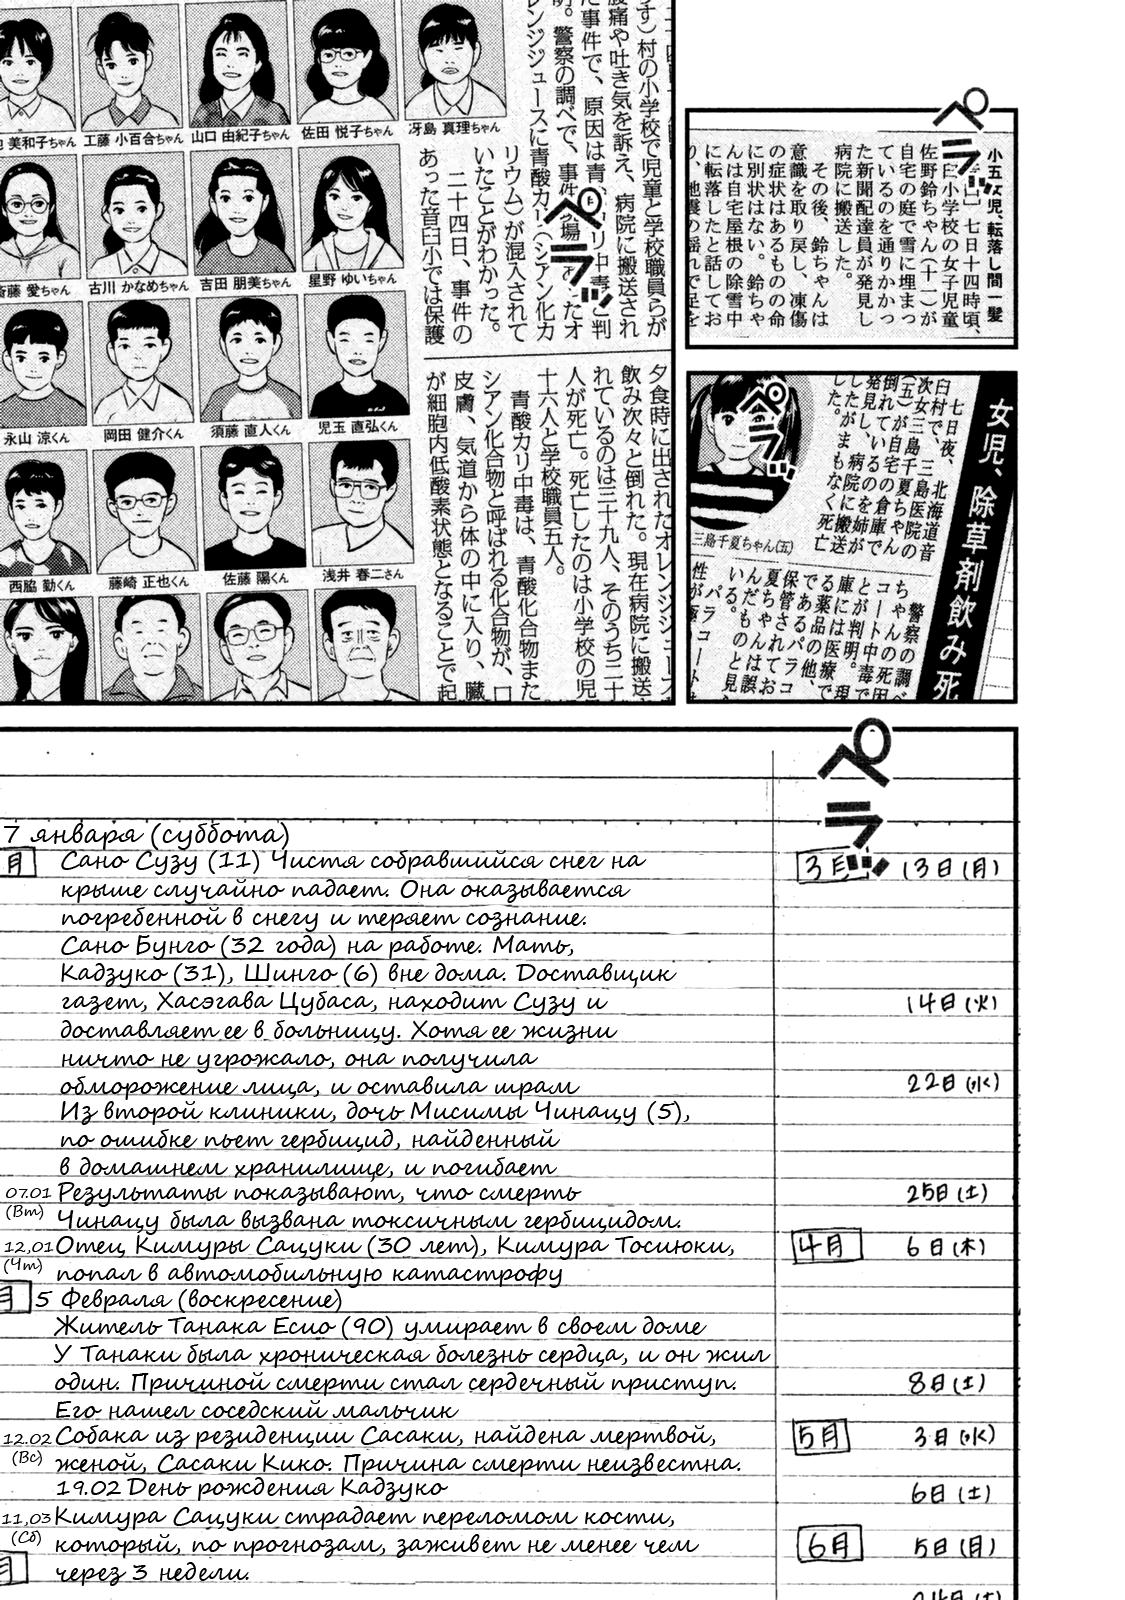 小五女児、転落し間一髪
七日十四時頃、
臼小学校の女子児童
佐野鈴ちゃん(十一)が
自宅の庭で雪に埋まっ
ているのを通りかかっ
た新聞配達員が発見し
病院に搬送した。
その後、鈴ちゃんは
意識を取り戻し、凍傷
の症状はあるものの命
に別状はない。鈴ちゃ
んは自宅屋根の除雪中
に転落したと話してお
り、地震の揺れで足を
ペラッ
す)村の小学校で児童と学校職員らが
腹痛や吐き気を訴え、病院に搬送され
た事件で、原因は青
明。警察の調べで、事件現場
レンジジュースに青酸カリ(シアン化カ
リウム)が混入されて
いたことがわかった。
二十四日、事件の
あった音臼小では保護
ペラッ
夕食時に出されたオレンジジュース
飲み次々と倒れた。現在病院に搬送
れているのは三十九人、そのうち二十
人が死亡。死亡したのは小学校の児
十六人と学校職員五人。
青酸カリ中毒は、青酸化合物また
シアン化合物と呼ばれる化合物が、口
皮膚、気道から体の中に入り、臓
が細胞内低酸素状態となることで起
美和子ちゃん
工藤 小百合ちゃん
山口 由紀子ちゃん
佐田 悦子ちゃん
冴島 真理ちゃん
斎藤 愛ちゃん
古川 かなめちゃん
吉田 朋美ちゃん
星野 ゆいちゃん
永山 涼くん
岡田 健介くん
須藤 直人くん
児玉 直弘くん
西脇 勤くん
藤崎 正也くん
佐藤 陽くん
浅井 春二さん
女児、除草剤飲み死
七日夜、北海道音
臼村で、三島医院の
次女三島千夏ちゃん
(五)が自宅の倉庫で
倒れているのを姉が
発見し、病院に搬送
したがまもなく死亡
した。
三島千夏ちゃん(五)
警察の調べ
ちゃんの死因
コート中毒で
とが判明。現
庫には医療で
る薬品の他、
であるパラコ
保管されてお
夏ちゃんは誤
んだものと見
いる。
パラコート
性が極
ペラッ
ペラッ
7 января (суббота)
月
Сано Сузу (11) Чистя собравшийся снег на
крыше случайно падает. Она оказывается
погребенной в снегу и теряет сознание.
Сано Бунго (32 года) на работе. Мать,
Кадзуко (31), Шинго (6) вне дома. Доставщик
газет, Хасэгава Цубаса, находит Сузу и
доставляет ее в больницу. Хотя ее жизни
ничто не угрожало, она получила
обморожение лица, и оставила шрам
Из второй клиники, дочь Мисимы Чинацу (5),
по ошибке пьет гербицид, найденный
в домашнем хранилище, и погибает
07.01 Результаты показывают, что смерть
(Вт) Чинацу была вызвана токсичным гербицидом.
12,01 Отец Кимуры Сацуки (30 лет), Кимура Тосиюки,
(Чт) попал в автомобильную катастрофу
月 5 Февраля (воскресение)
Житель Танака Есио (90) умирает в своем доме
У Танаки была хроническая болезнь сердца, и он жил
один. Причиной смерти стал сердечный приступ.
Его нашел соседский мальчик
12.02 Собака из резиденции Сасаки, найдена мертвой,
(Вс) женой, Сасаки Кико. Причина смерти неизвестна.
19.02 День рождения Кадзуко
11,03 Кимура Сацуки страдает переломом кости,
(Сб) который, по прогнозам, заживет не менее чем
月 через 3 недели.
3月 13日(月)
14日(火)
22日(水)
25日(土)
4月 6日(木)
8日(土)
5月 3日(水)
6日(土)
6月 5日(月)
24日(土)